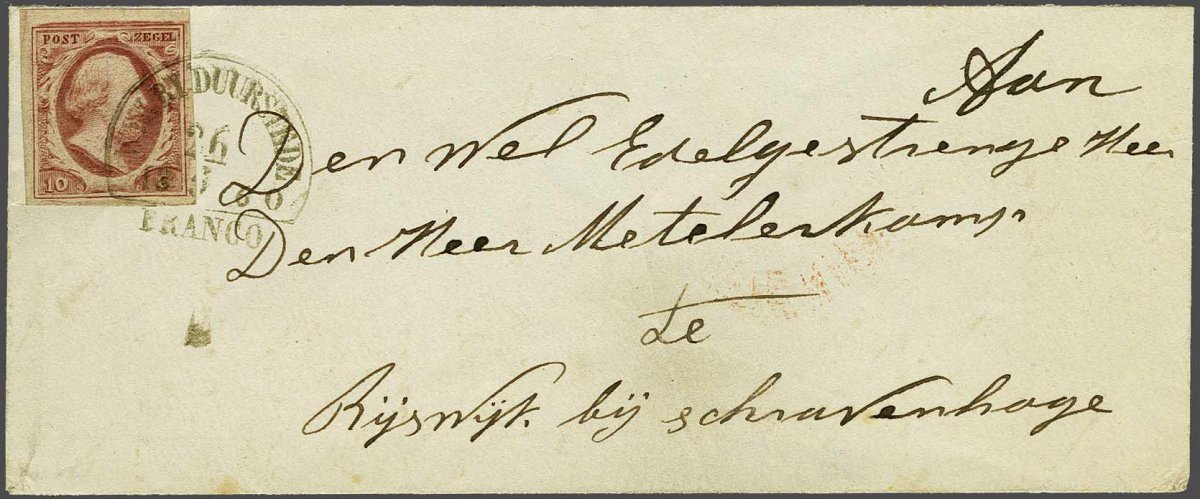 POST ZEGEL
10
BY DUURSTEDE
26
60
FRANCO
Aan
Den Wel Edelgestrenge Heer
Den Heer Metelerkamp
te
Rijswijk bij schravenhage